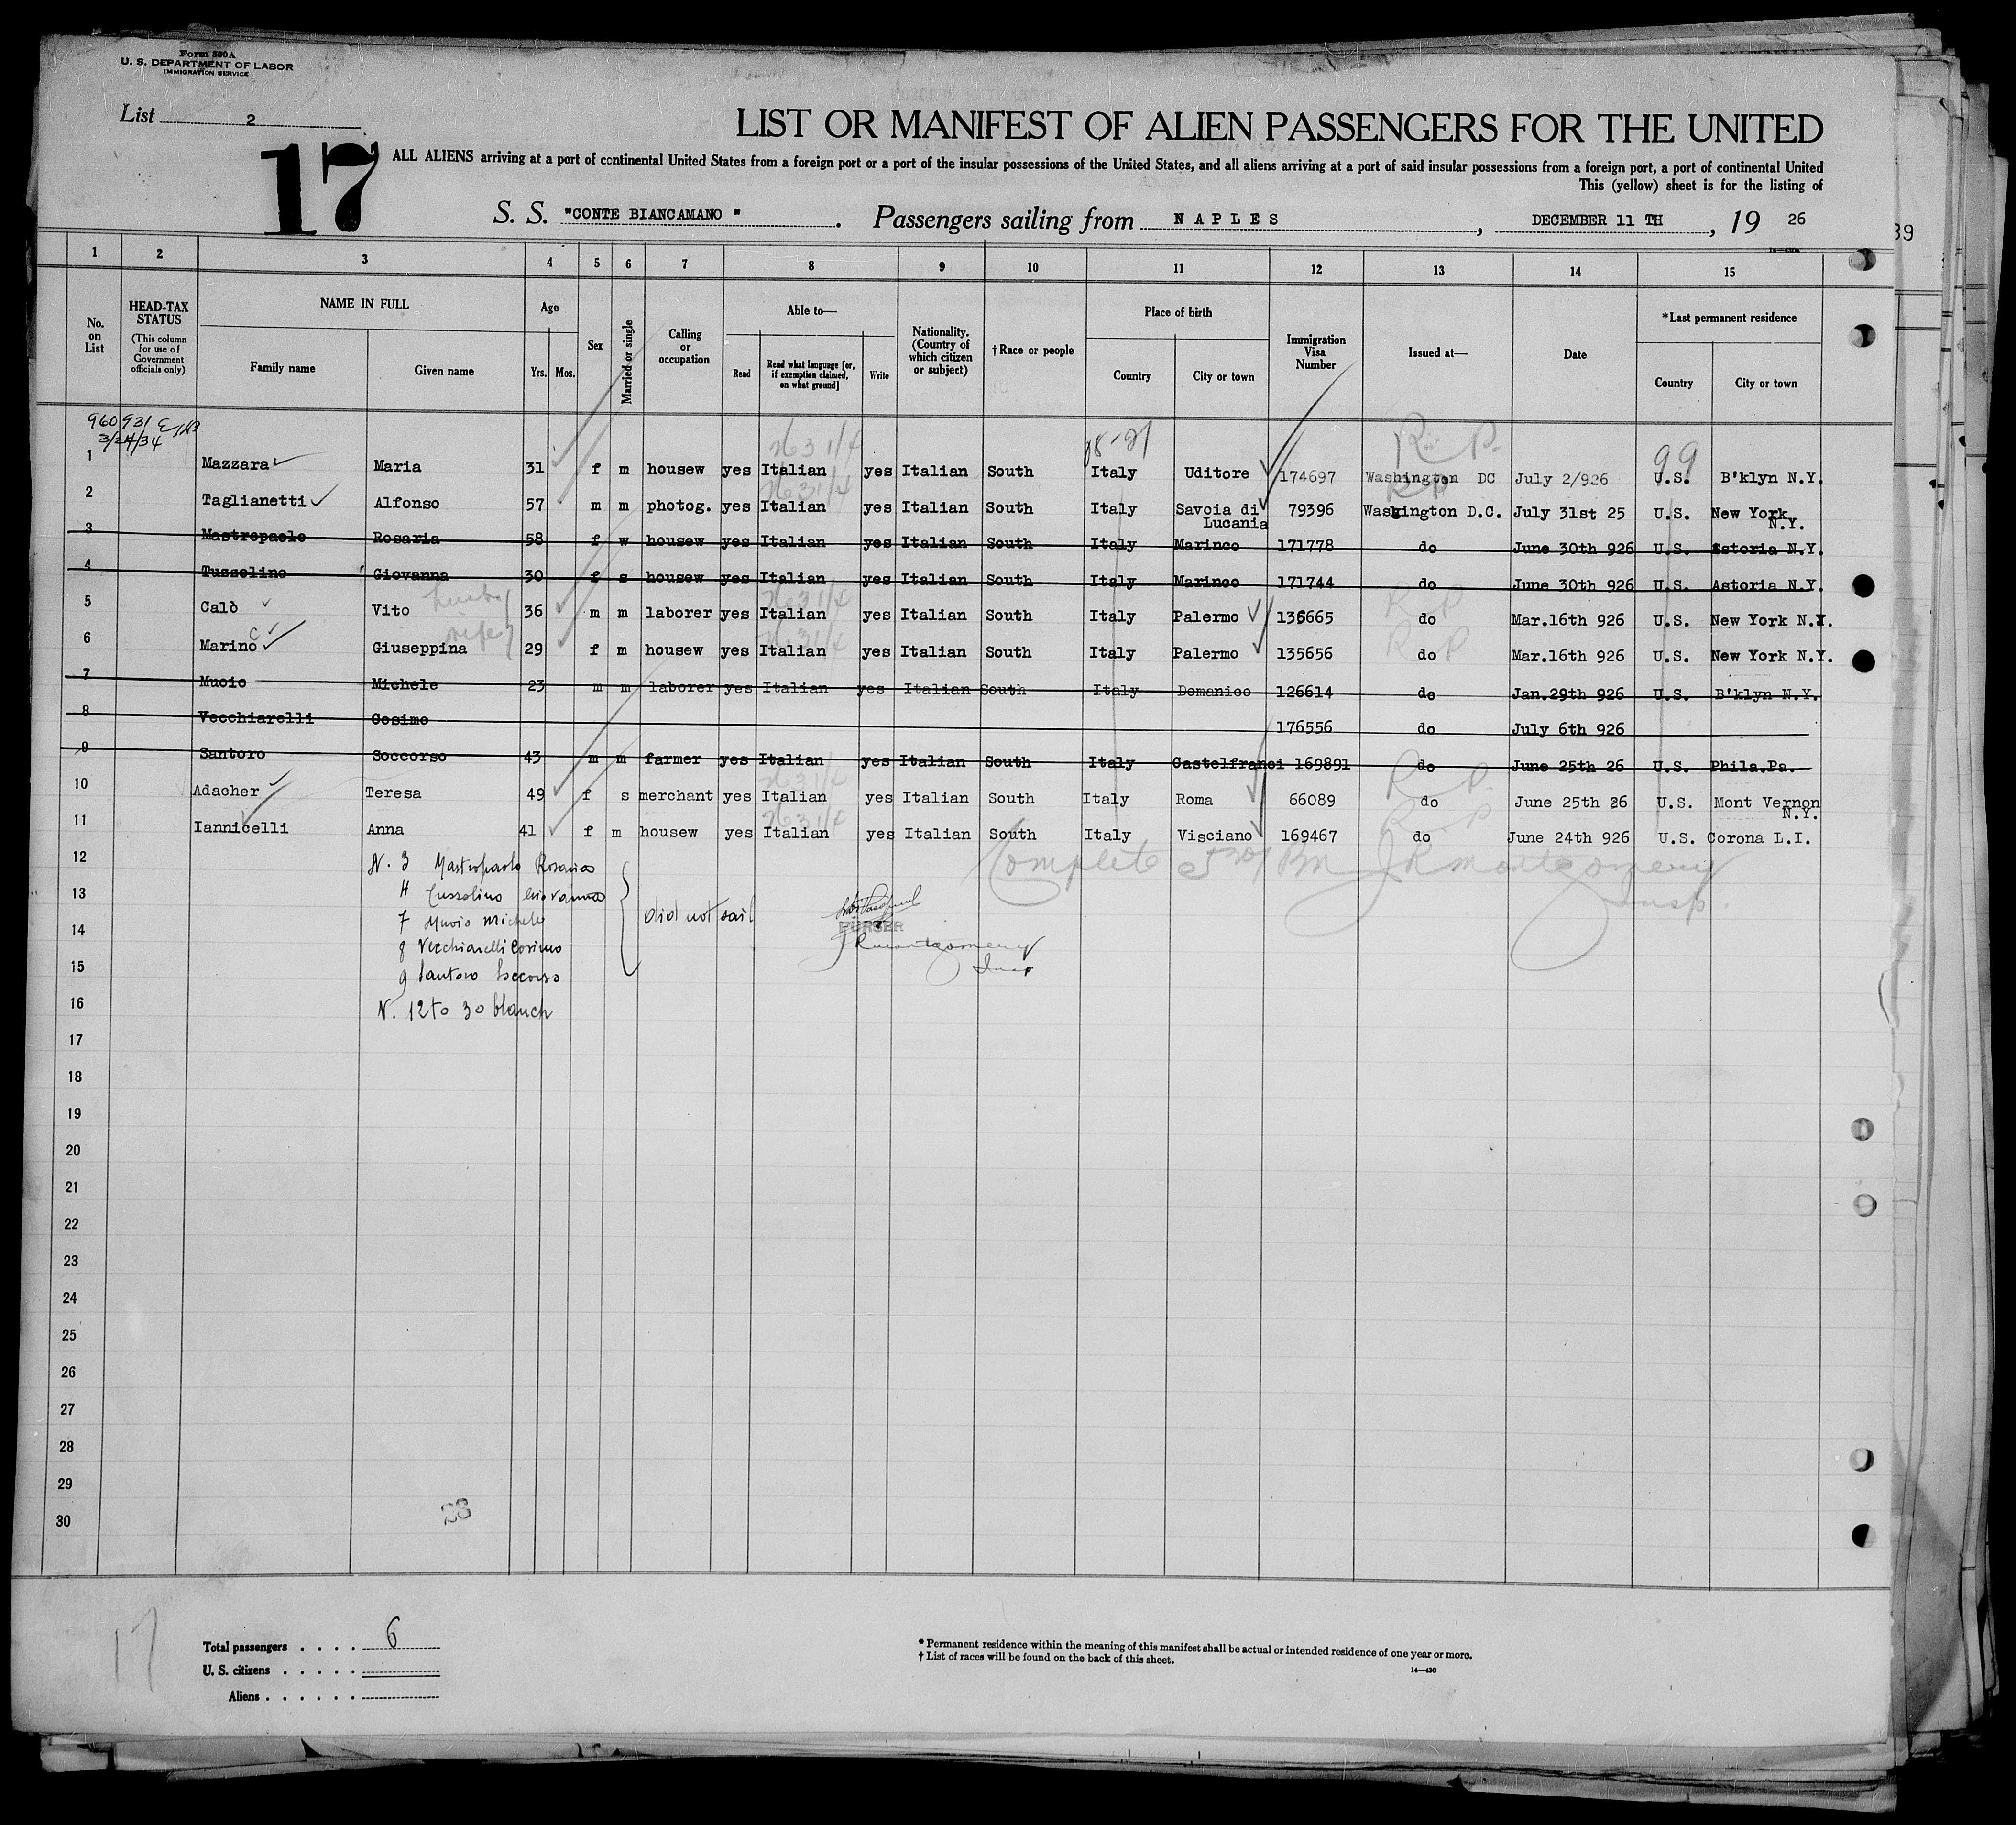 Form 500A
U. S. DEPARTMENT OF LABOR
IMMIGRATION SERVICE
List 2
17
LIST OR MANIFEST OF ALIEN PASSENGERS FOR THE UNITED
ALL ALIENS arriving at a port of continental United States from a foreign port or a port of the insular possessions of the United States, and all aliens arriving at a port of said insular possessions from a foreign port, a port of continental United
This (yellow) sheet is for the listing of
S. S. "CONTE BIANCAMANO ". Passengers sailing from NAPLES, DECEMBER 11 TH, 19 26
39
1 2 3 4 5 6 7 8 9 10 11 12 13 14 15
No. on List
HEAD-TAX STATUS (This column for use of Government officials only)
NAME IN FULL Family name Given name
Age Yrs. Mos.
Sex
Married or single
Calling or occupation
Able to— Read Read what language [or, if exemption claimed, on what ground] Write
Nationality. (Country of which citizen or subject)
†Race or people
Place of birth Country City or town
Immigration Visa Number
Issued at—
Date
*Last permanent residence Country City or town
960931
3/24/34
2631/4 R. P. 99
1 Mazzara Maria 31 f m housew yes Italian yes Italian South Italy Uditore 174697 Washington DC July 2/926 U.S. B'klyn N.Y.
2 Taglianetti Alfonso 57 m m photog. yes Italian yes Italian South Italy Savoia di Lucania 79396 Washington D.C. July 31st 25 U.S. New York N.Y.
3 Mastropaolo Rosaria 58 f w housew yes Italian yes Italian South Italy Marinco 171778 do June 30th 926 U.S. Astoria N.Y.
4 Tuzzolino Giovanna 30 f s housew yes Italian yes Italian South Italy Marinco 171744 do June 30th 926 U.S. Astoria N.Y.
5 Calò Vito 36 m m laborer yes Italian yes Italian South Italy Palermo 135665 do Mar.16th 926 U.S. New York N.Y.
wife
6 Marino Giuseppina 29 f m housew yes Italian yes Italian South Italy Palermo 135656 do Mar.16th 926 U.S. New York N.Y.
7 Mucio Michele 23 m m laborer yes Italian yes Italian South Italy Domanico 126614 do Jan.29th 926 U.S. B'klyn N.Y.
8 Vecchiarelli Cosimo 176556 do July 6th 926
9 Santoro Soccorso 43 m m farmer yes Italian yes Italian South Italy Castelfranci 169891 do June 25th 26 U.S. Phila.Pa.
10 Adacher Teresa 49 f s merchant yes Italian yes Italian South Italy Roma 66089 do June 25th 26 U.S. Mont Vernon N.Y.
11 Iannicelli Anna 41 f m housew yes Italian yes Italian South Italy Visciano 169467 do June 24th 926 U.S. Corona L.I.
12 N. 3 Mastropaolo Rosaria Complete JRMontgomery
Insp.
13 4 Tussolino Giovanna
7 Muvio Michele did not sail
14 PURSER
8 Vecchiarelli Cosimo JRMontgomery
15 9 Santoro Soccorso Insp
16 N. 12 to 30 blanch
17
18
19
20
21
22
23
24
25
26
27
28
29
30
17
Total passengers . . . . 6
U. S. citizens . . . . .
Aliens . . . . . .
* Permanent residence within the meaning of this manifest shall be actual or intended residence of one year or more.
† List of races will be found on the back of this sheet.
14—430